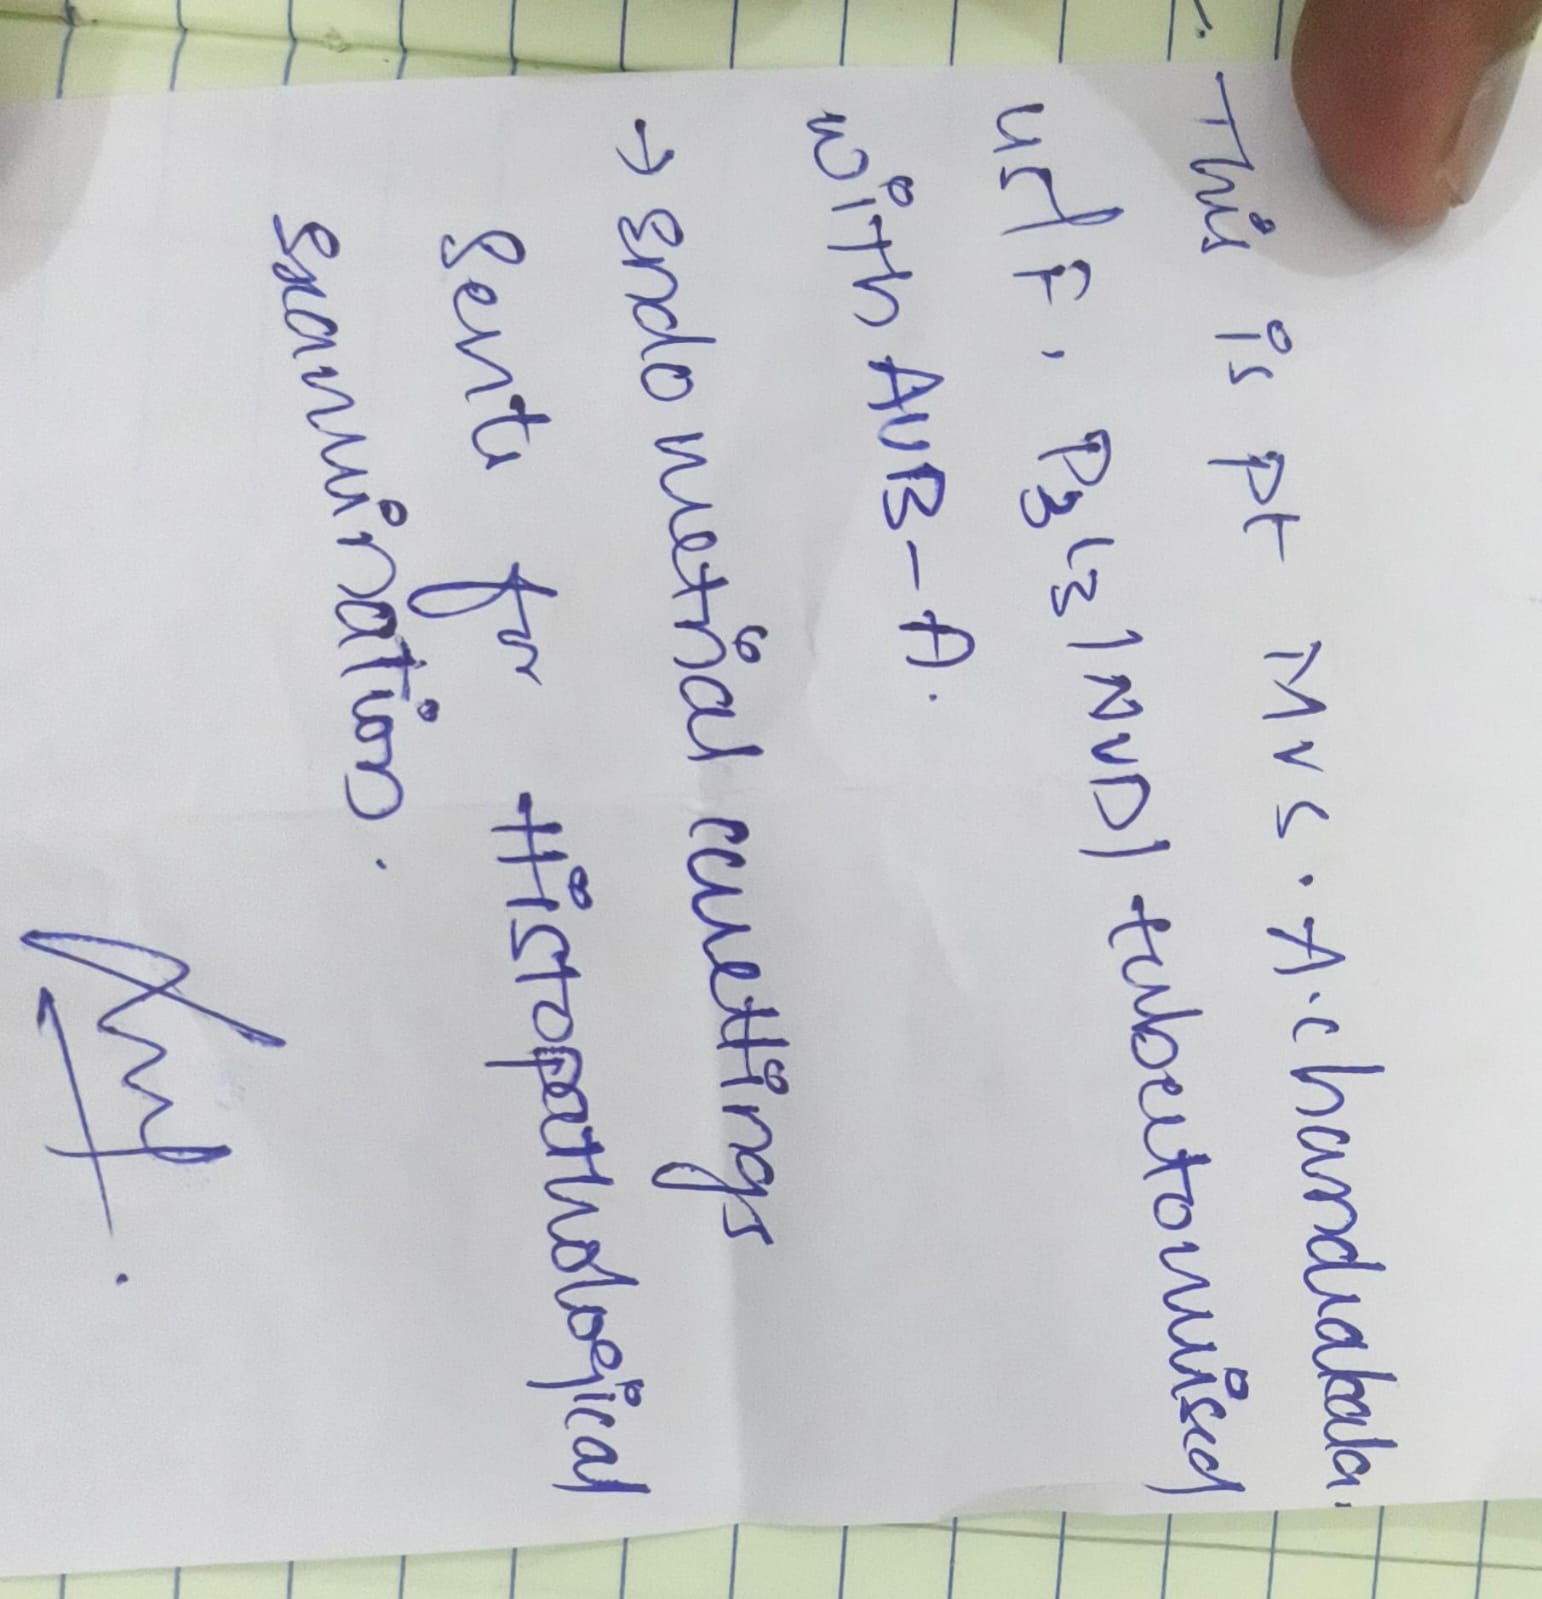 This is pt Mrs. A. chandrakala.
45/F, P3L3/NVD/tubectomised
with AUB-A.
→ Endometrial curettings
sent for Histopathological
Examination.